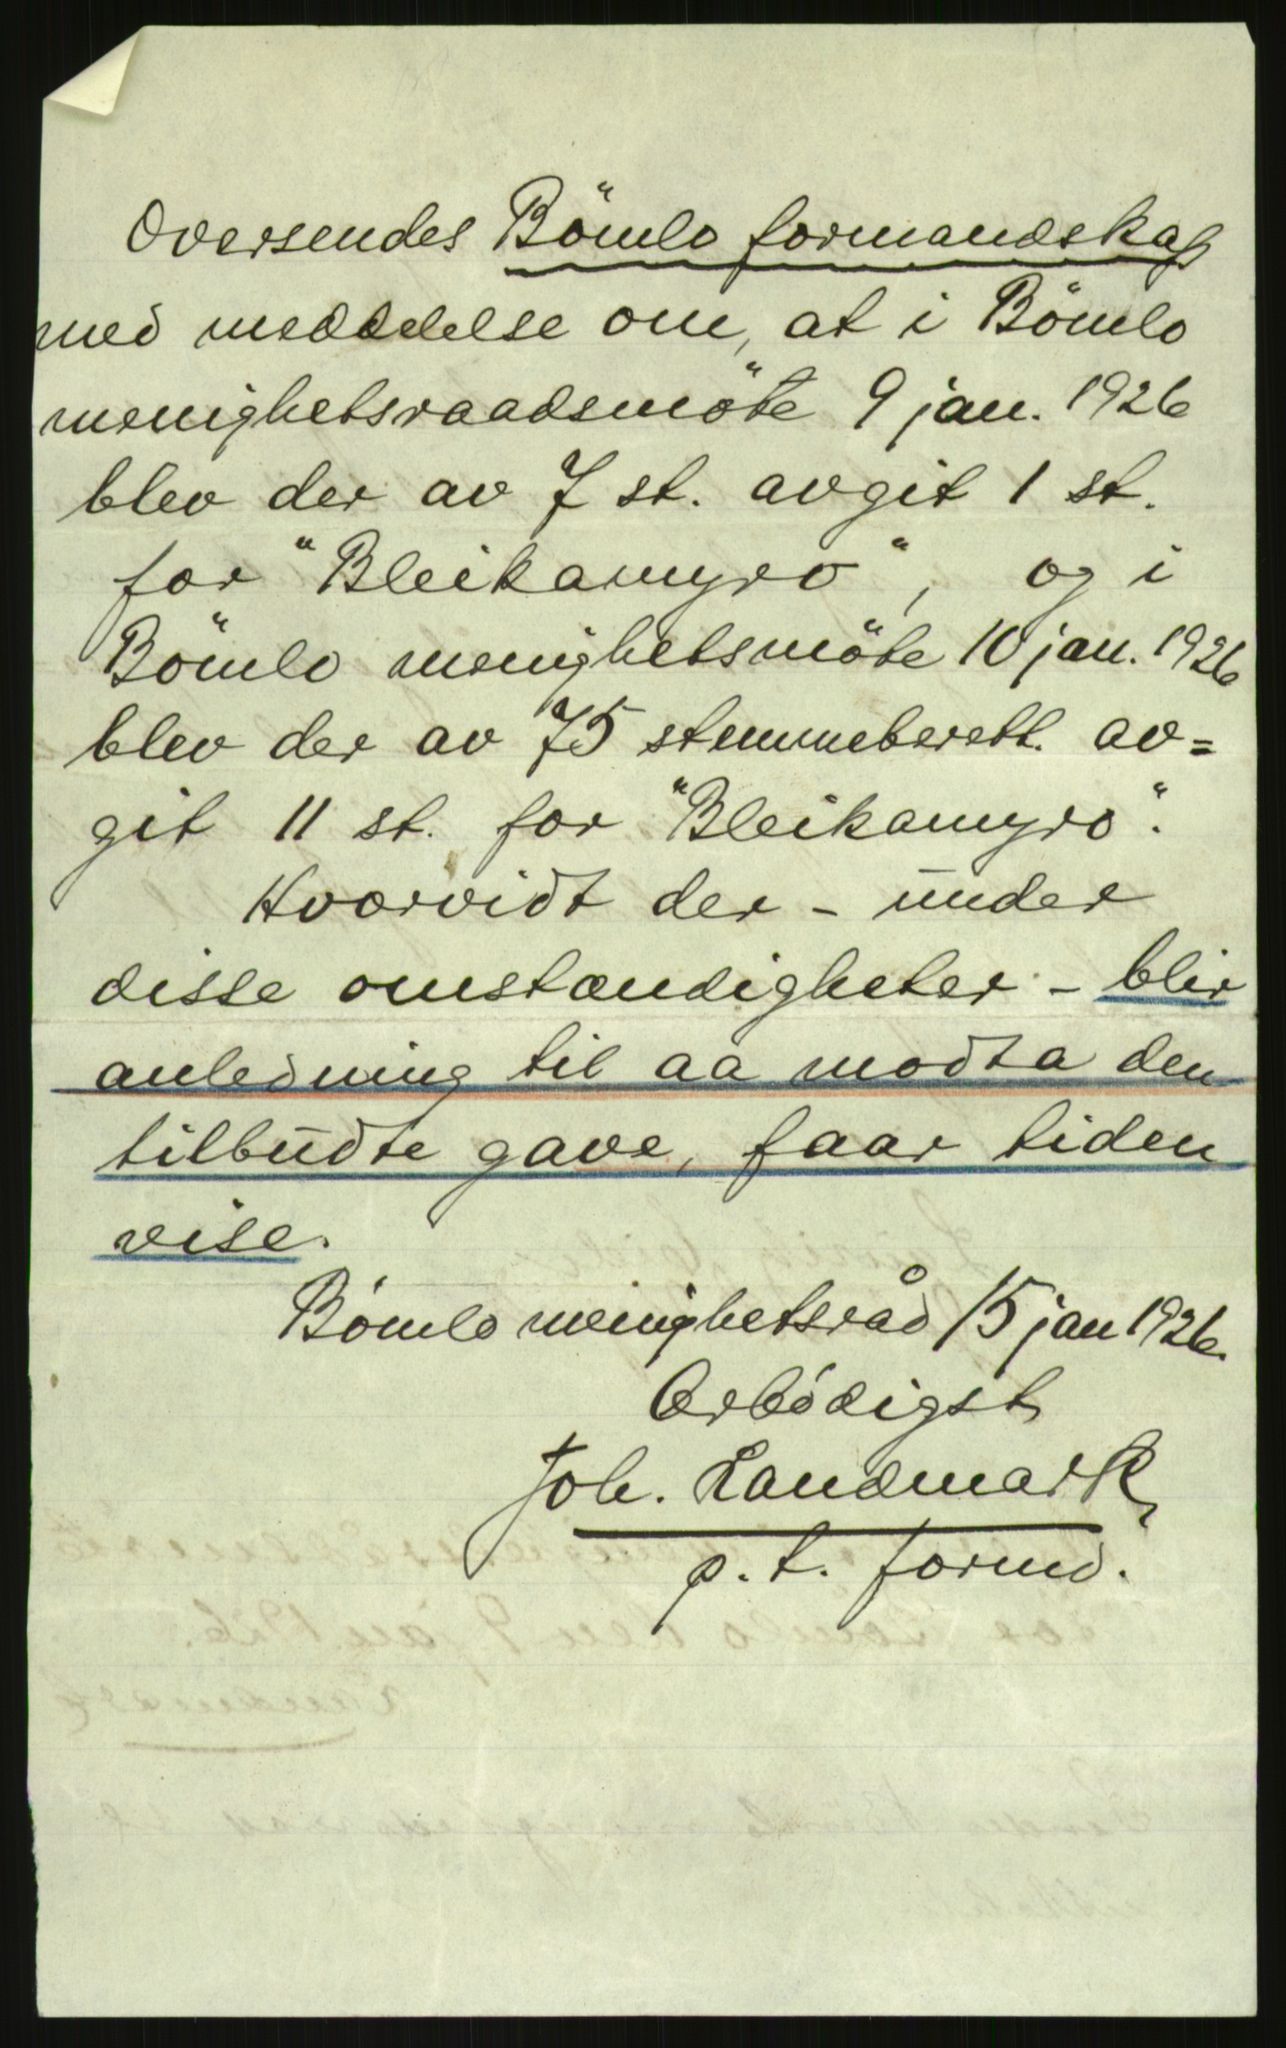 Oversendes Bömlo formandskap
med meddelelse om, at i Bömlo
menighetsraadsmöte 9 jan. 1926
blev der av 7 st. avgit 1 st.
for "Bleikamyro", og i
Bömlo menighetsmöte 10 jan. 1926
blev der av 75 stemmeberett. av=
git 11 st. for "Bleikamyro".
Hvorvidt der - under
disse omstændigheter - blir
anledning til aa modta den
tilbudte gave, faar tiden
vise.
Bómlo menighetsråd 15 jan 1926.
Ærbódigst
Joh. Landmark
p. t. formd.